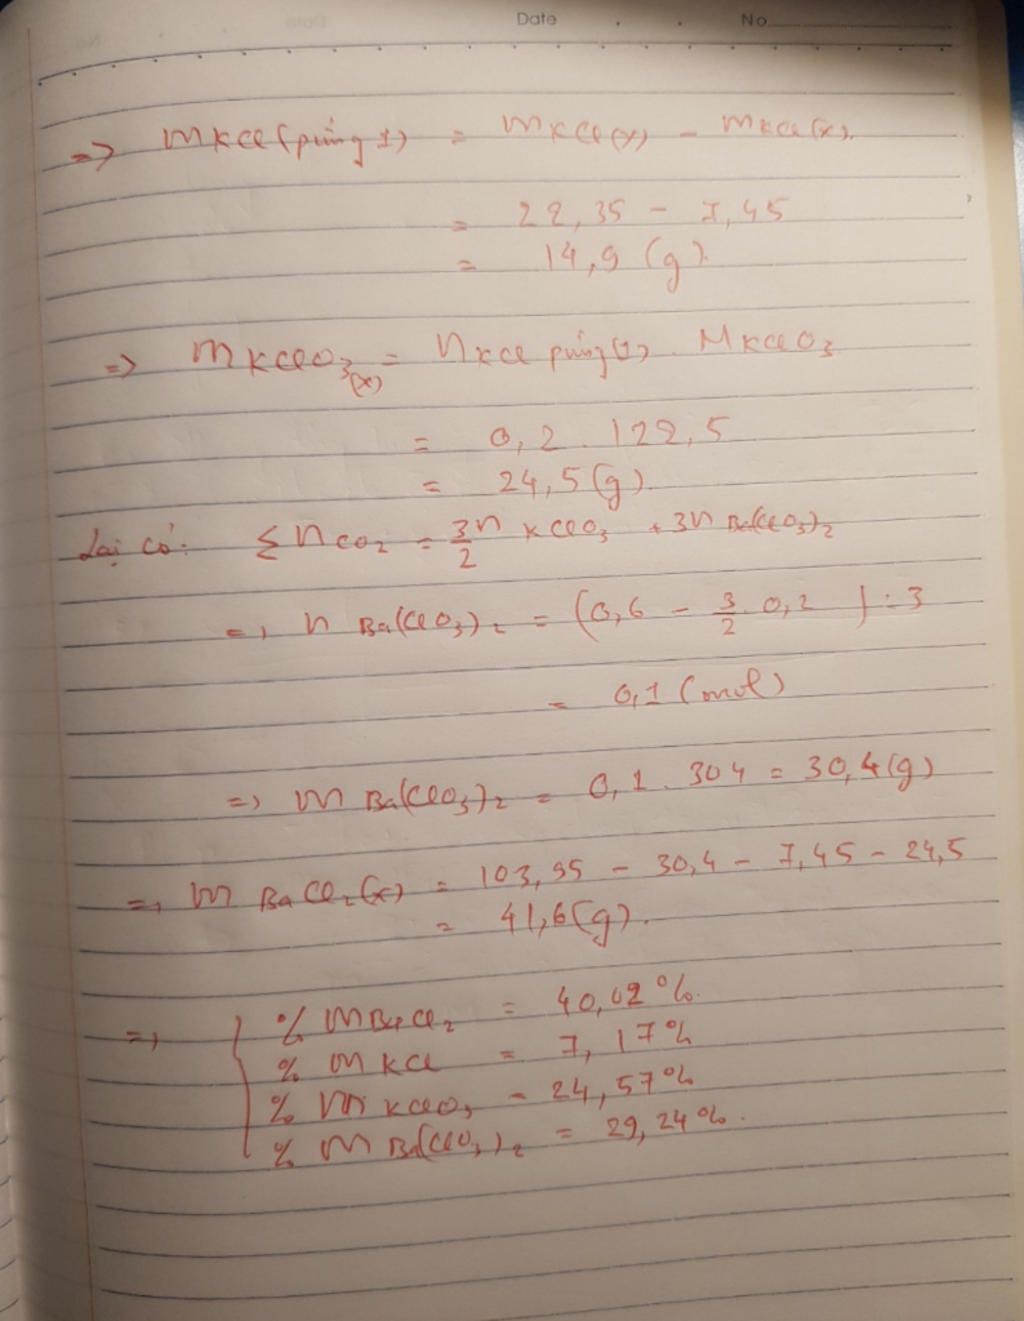 Date . . No
=> mKCl (pứng 1) = mKCl (y) - mKCl (x).
= 22,35 - 7,45
= 14,9 (g).
=> mKClO3(x) = nKCl pứng(1) . MKClO3
= 0,2 . 122,5
= 24,5 (g).
Lại có: Σ nCO2 = 3/2 n KClO3 + 3n Ba(ClO3)2
=> n Ba(ClO3)2 = (0,6 - 3/2 . 0,2 ) : 3
= 0,1 (mol)
=> m Ba(ClO3)2 = 0,1 . 304 = 30,4 (g)
=> m BaCl2 (x) = 103,95 - 30,4 - 7,45 - 24,5
= 41,6 (g).
=> { % mBaCl2 = 40,02 %.
% m KCl = 7,17 %
% m KClO3 = 24,57 %
% m Ba(ClO3)2 = 29,24 %.